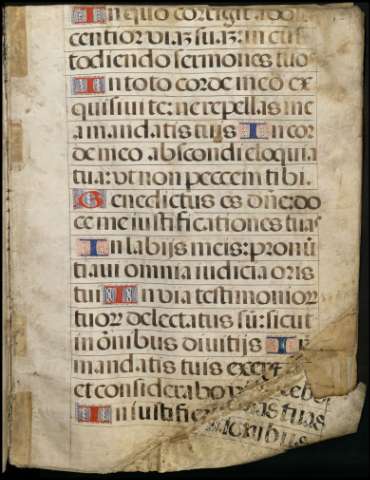 In quo corrigit adoles
centior viaz suaz: in cus
todiendo sermones tuos
In toto corde meo ex
quisiui te: ne repellas me
a mandatis tuijs In cor
de meo abscondi eloquia
tua: vt non peccem tibi.
Benedictus es dñe: do
ce me iustificationes tuas
In labijs meis: pronũ
tiaui omnia iudicia oris
tui In via testimonioꝝ
tuoꝝ delectatus sũ: sicut
in õnibus diuitijs In
mandatis tuis exer
et considerabo
In iustific tuas